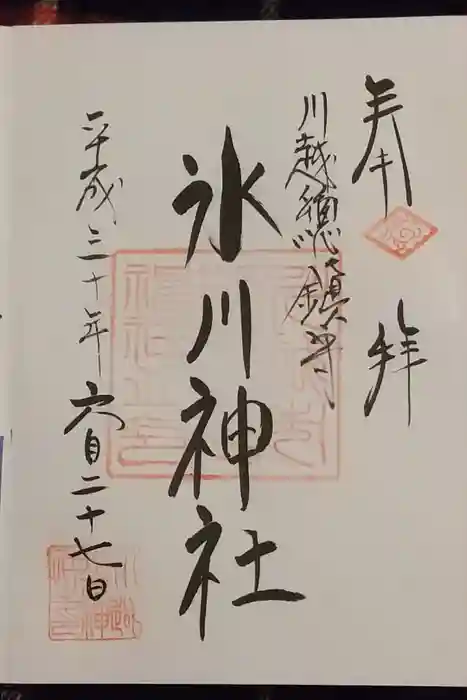 奉拝
川越總鎮守
氷川神社
平成三十年六月二十七日